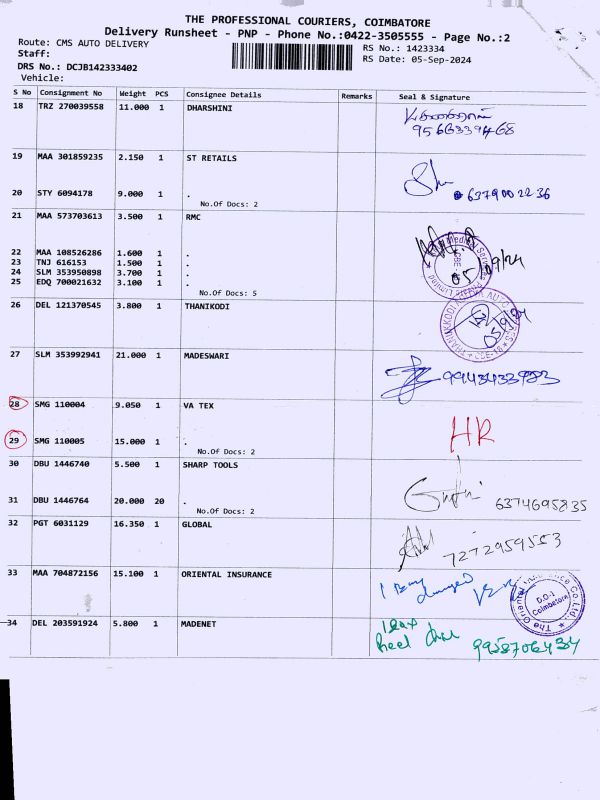 THE PROFESSIONAL COURIERS, COIMBATORE
Delivery Runsheet - PNP - Phone No.:0422-3505555 - Page No.:2
Route: CMS AUTO DELIVERY
RS No.: 1423334
Staff:
RS Date: 05-Sep-2024
DRS No.: DCJB142333402
Vehicle:
S No Consignment No Weight PCS Consignee Details Remarks Seal & Signature
18 TRZ 270039558 11.000 1 DHARSHINI
19 MAA 301859235 2.150 1 ST RETAILS
20 STY 6094178 9.000 1 . 6379002236
No.Of Docs: 2
21 MAA 573703613 3.500 1 RMC
22 MAA 108526286 1.600 1 .
23 TNJ 616153 1.500 1 .
24 SLM 353950898 3.700 1 . 05/09/24
25 EDQ 700021632 3.100 1 .
No.Of Docs: 5
26 DEL 121370545 3.800 1 THANIKODI
27 SLM 353992941 21.000 1 MADESWARI
28 SMG 110004 9.050 1 VA TEX
HR
29 SMG 110005 15.000 1 .
No.Of Docs: 2
30 DBU 1446740 5.500 1 SHARP TOOLS
31 DBU 1446764 20.000 20 . 6374695835
No.Of Docs: 2
32 PGT 6031129 16.350 1 GLOBAL
7272959553
33 MAA 704872156 15.100 1 ORIENTAL INSURANCE
D.O-1
Coimbatore
34 DEL 203591924 5.800 1 MADENET
9958706434